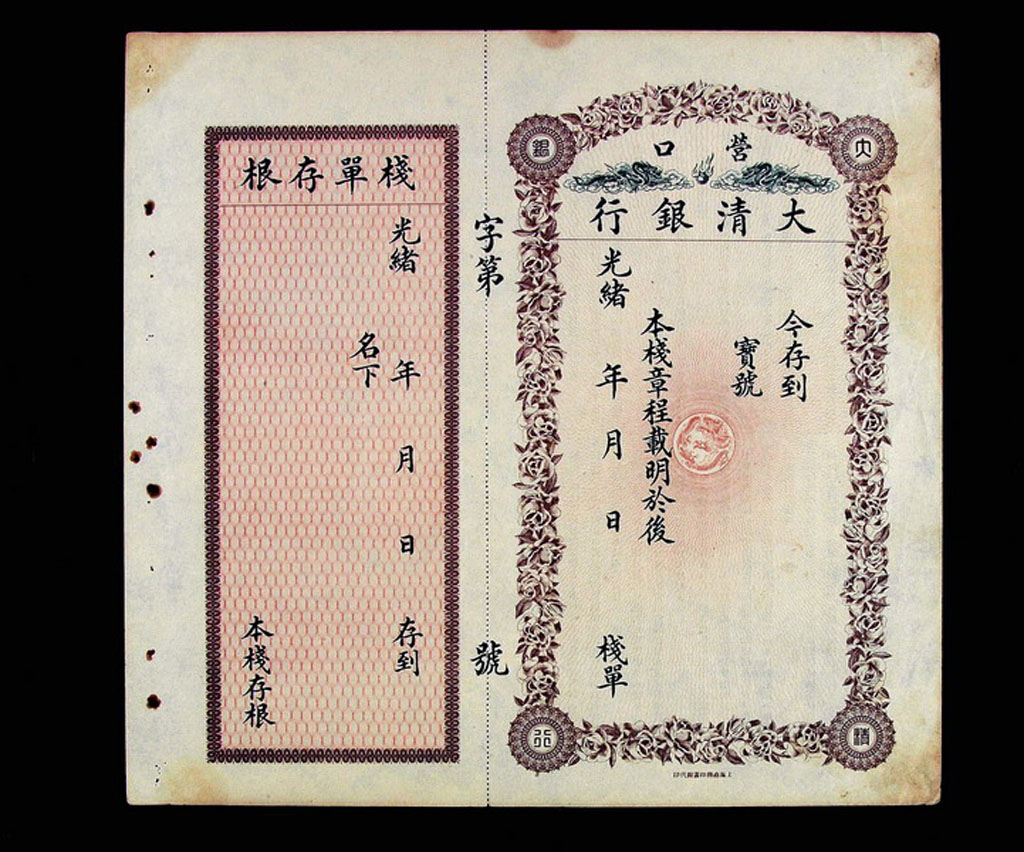 營口
大清銀行
今存到
寶號
本棧章程載明於後
光緒 年 月 日 棧單
大
清
銀
行
上海商務印書館代印
字第 號
棧單存根
光緒 年 月 日 存到
名下
本棧存根